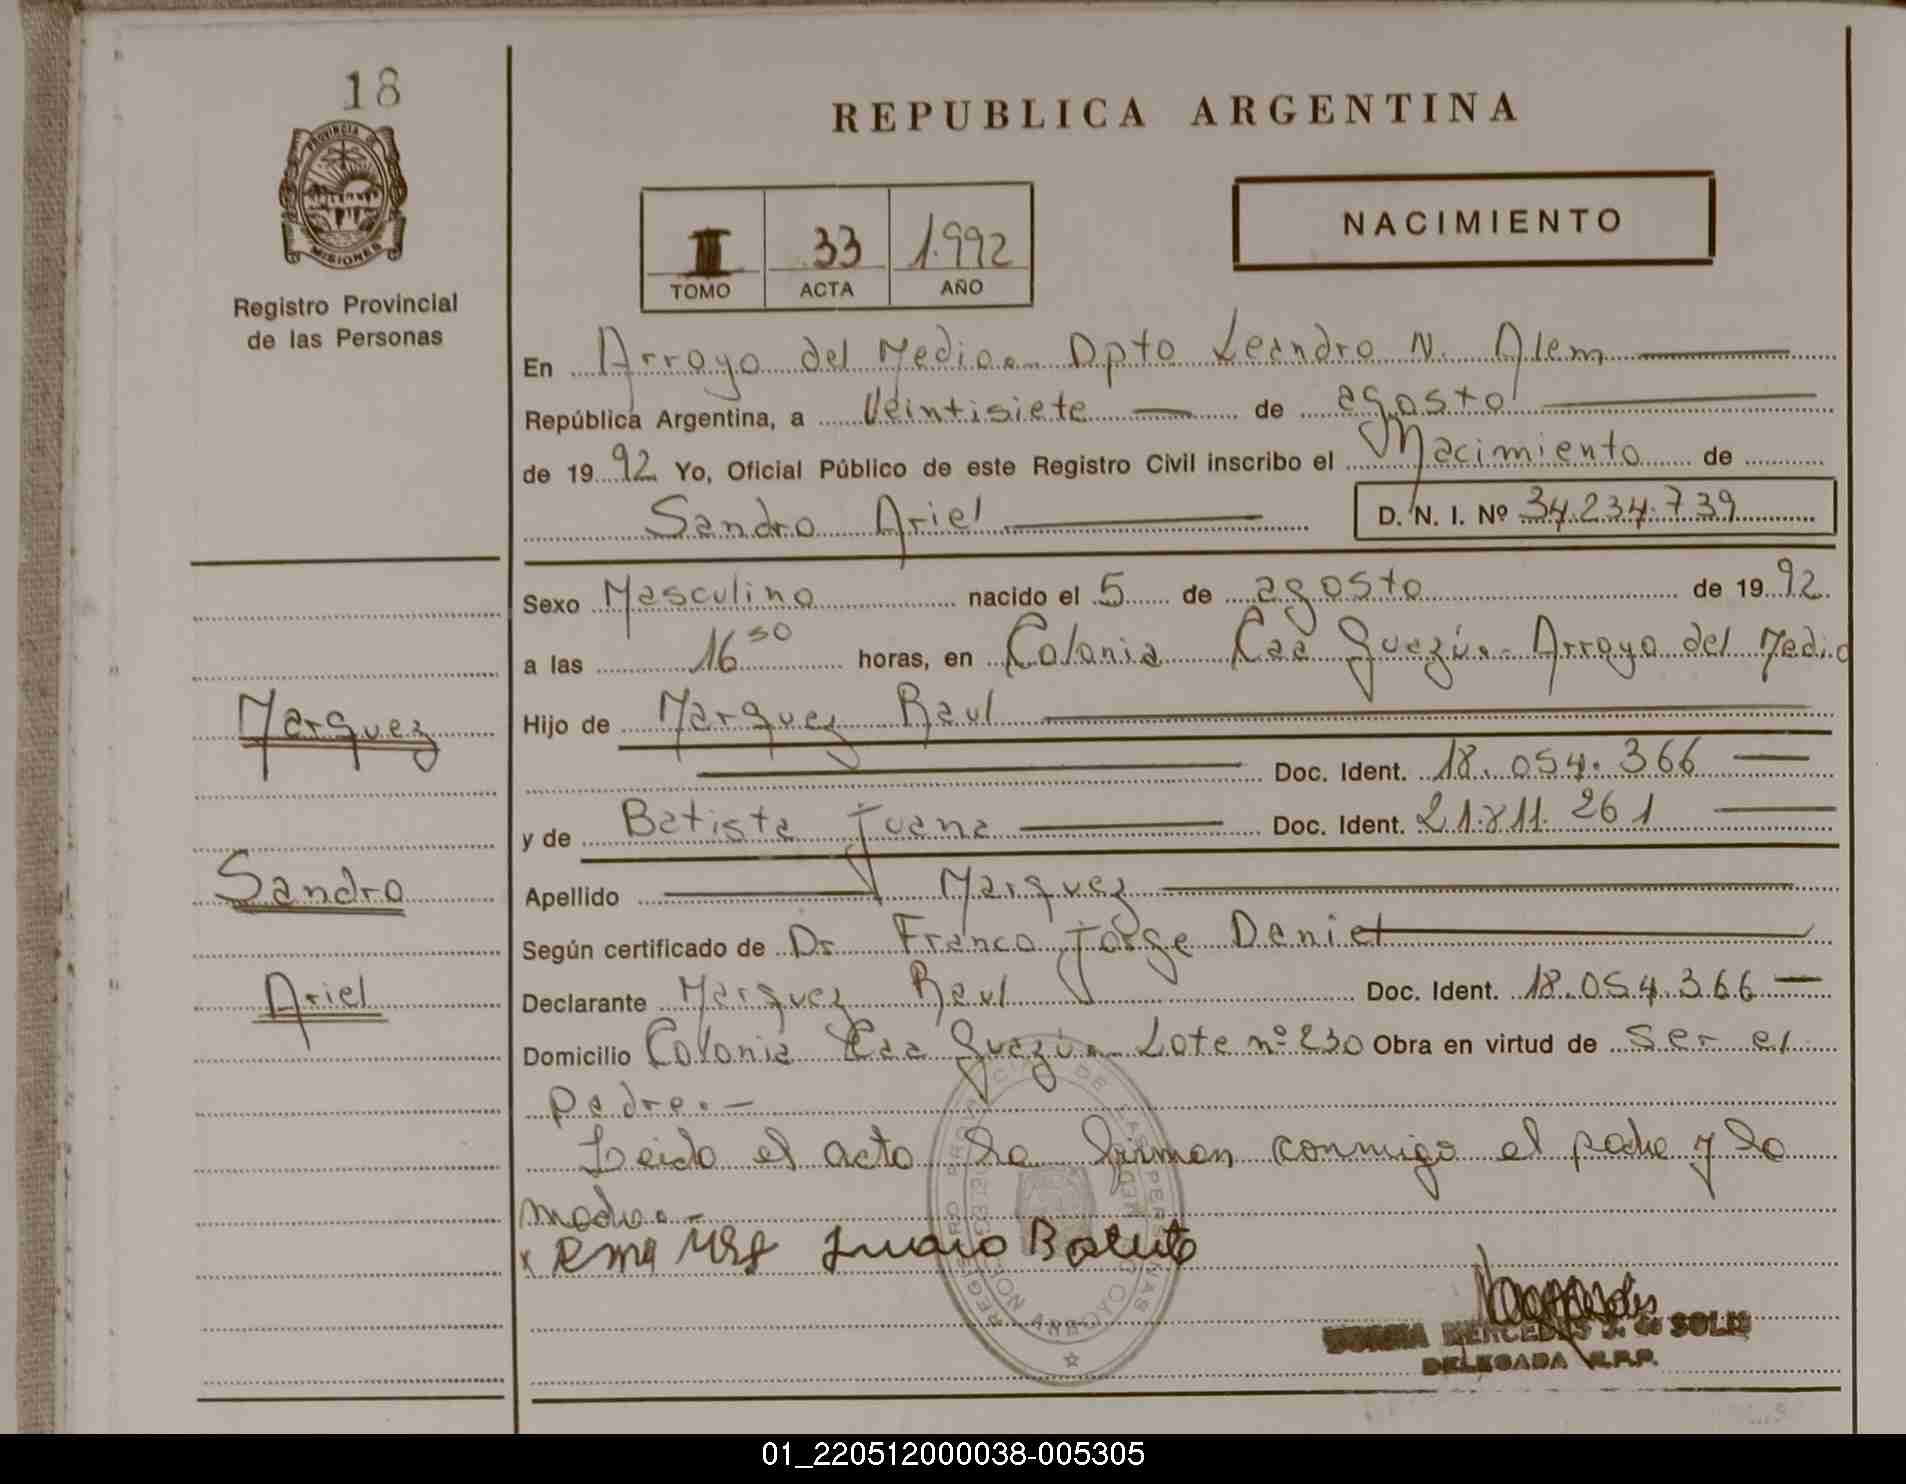 18
PROVINCIA DE
MISIONES
Registro Provincial
de las Personas
Marquez
Sandro
Ariel
REPUBLICA ARGENTINA
NACIMIENTO
II 33 1.992
TOMO ACTA AÑO
En Arroyo del Medio.- Dpto Leandro N. Alem
República Argentina, a Veintisiete de agosto
de 1992 Yo, Oficial Público de este Registro Civil inscribo el Nacimiento de
Sandro Ariel D. N. I. Nº 34.234.739
Sexo Masculino nacido el 5 de agosto de 1992
a las 16 30 horas, en Colonia Caa Guazú.- Arroyo del Medio
Hijo de Marquez Raul
Doc. Ident. 18.054.366
y de Batista Juana Doc. Ident. 21.811.261
Apellido Marquez
Según certificado de Dr. Franco Jorge Daniel
Declarante Marquez Raul Doc. Ident. 18.054.366
Domicilio Colonia Caa Guazú.- Lote nº 230 Obra en virtud de ser el
padre.-
Leido el acto la firman conmigo el padre y la
madre.-
x Juana Batista
MERCEDES S. de SOLIS
DELEGADA R.P.P.
01_220512000038-005305